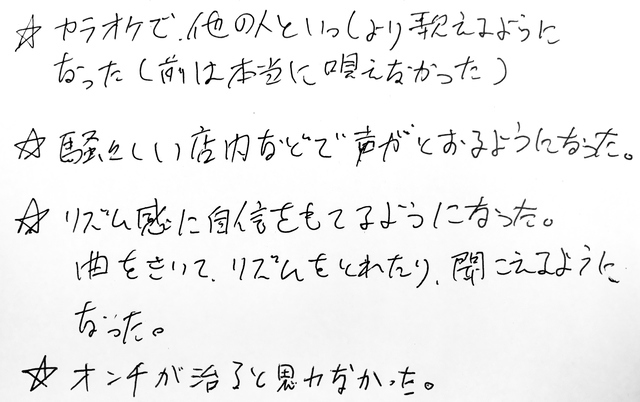 ☆ カラオケで、他の人といっしょに歌えるように
なった（前は本当に唄えなかった）
☆ 騒々しい店内などで声がとおるようになった。
☆ リズム感に自信をもてるようになった。
曲をきいて、リズムをとれたり、聞こえるように
なった。
☆ オンチが治ると思わなかった。